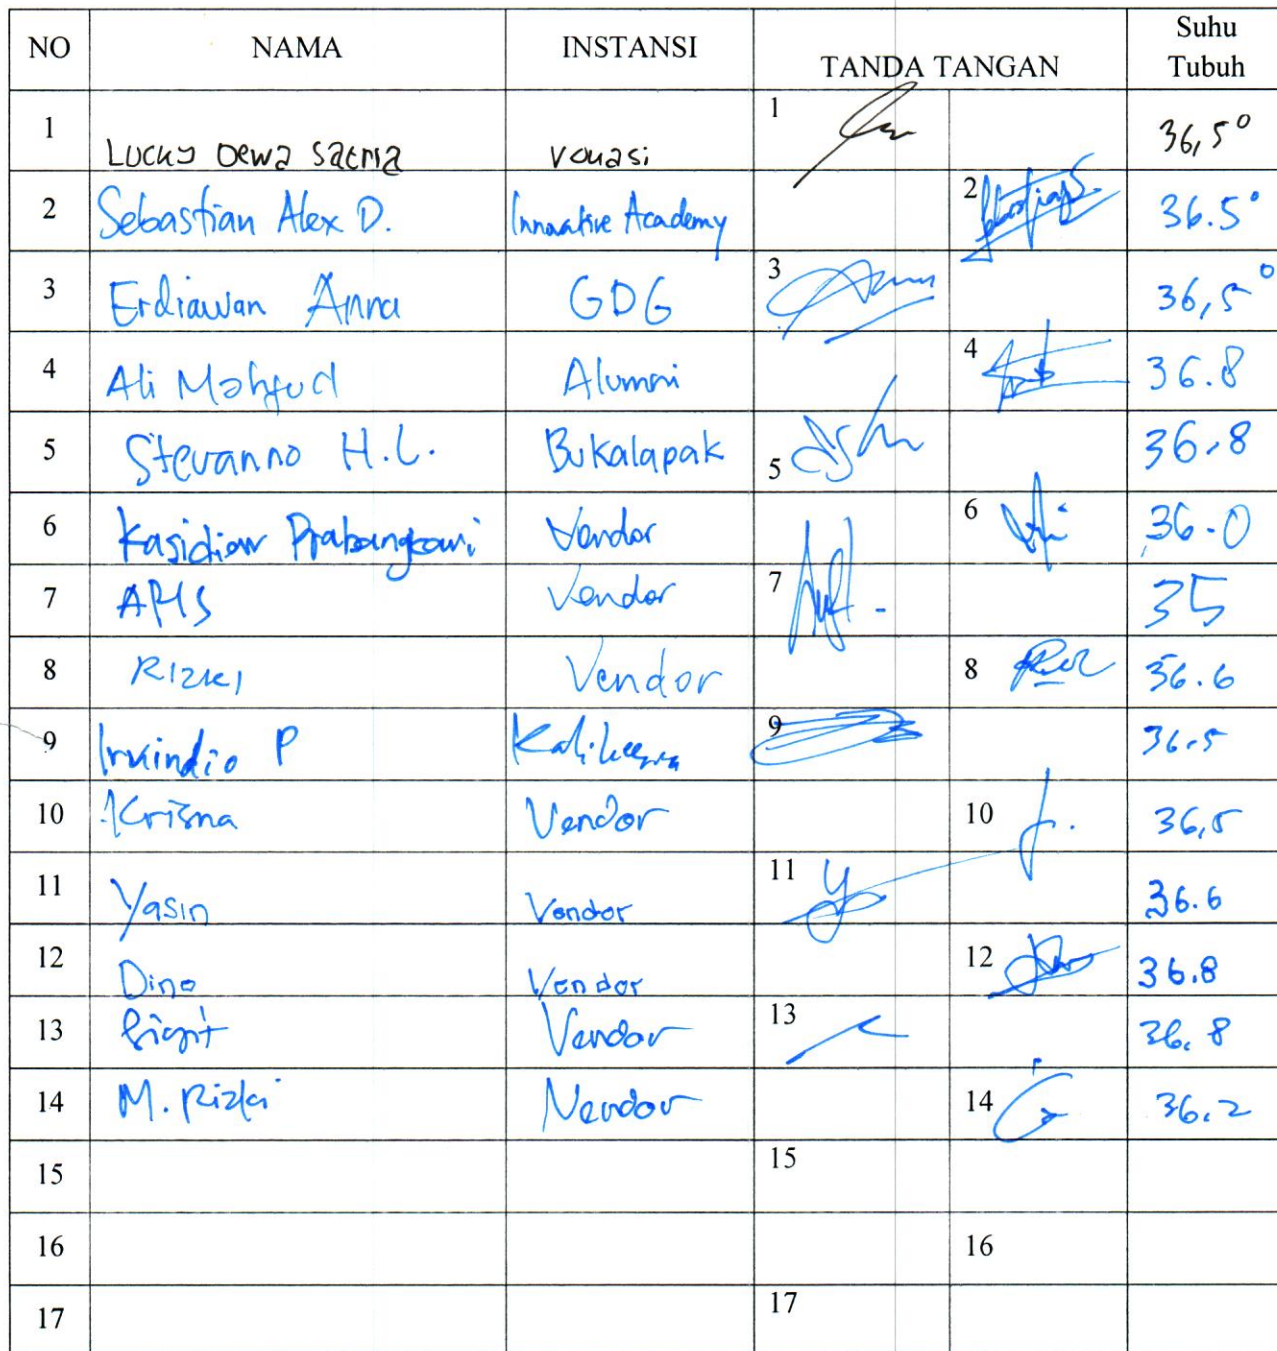 NO NAMA INSTANSI TANDA TANGAN Suhu Tubuh
1 Lucky Dewa Satria Vokasi 1 36,5°
2 Sebastian Alex D. Innovative Academy 2 36.5°
3 Erdiawan Anna GDG 3 36,5°
4 Ali Mahfud Alumni 4 36.8
5 Stevanno H.L. Bukalapak 5 36.8
6 Kasidiow Vendor 6 36.0
7 Vendor 7 35
8 Rizki Vendor 8 36.6
9 P 9 36.5
10 Krisna Vendor 10 36,5
11 Yasin Vendor 11 36.6
12 Dino Vendor 12 36.8
13 Sigit Vendor 13 36.8
14 M. Rizki Vendor 14 36.2
15 15
16 16
17 17